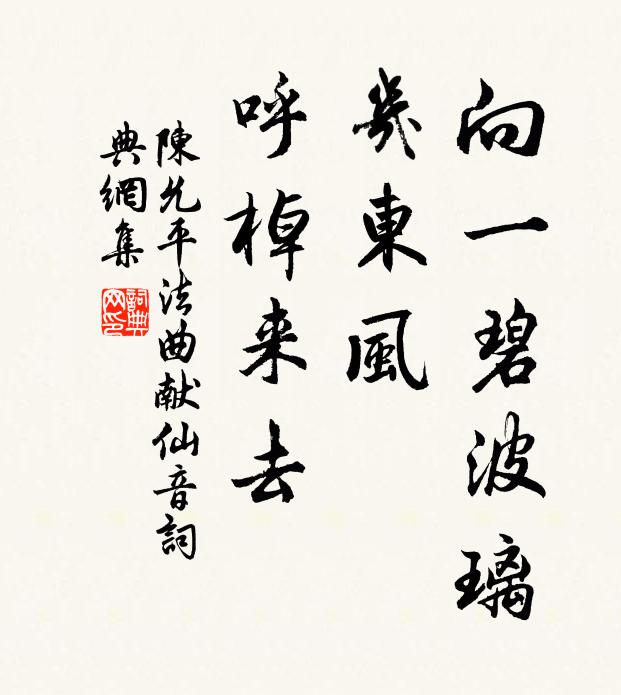 向一碧波璃
幾東風
呼棹来去
陳允平法曲献仙音詞
典網集
詞典
网印